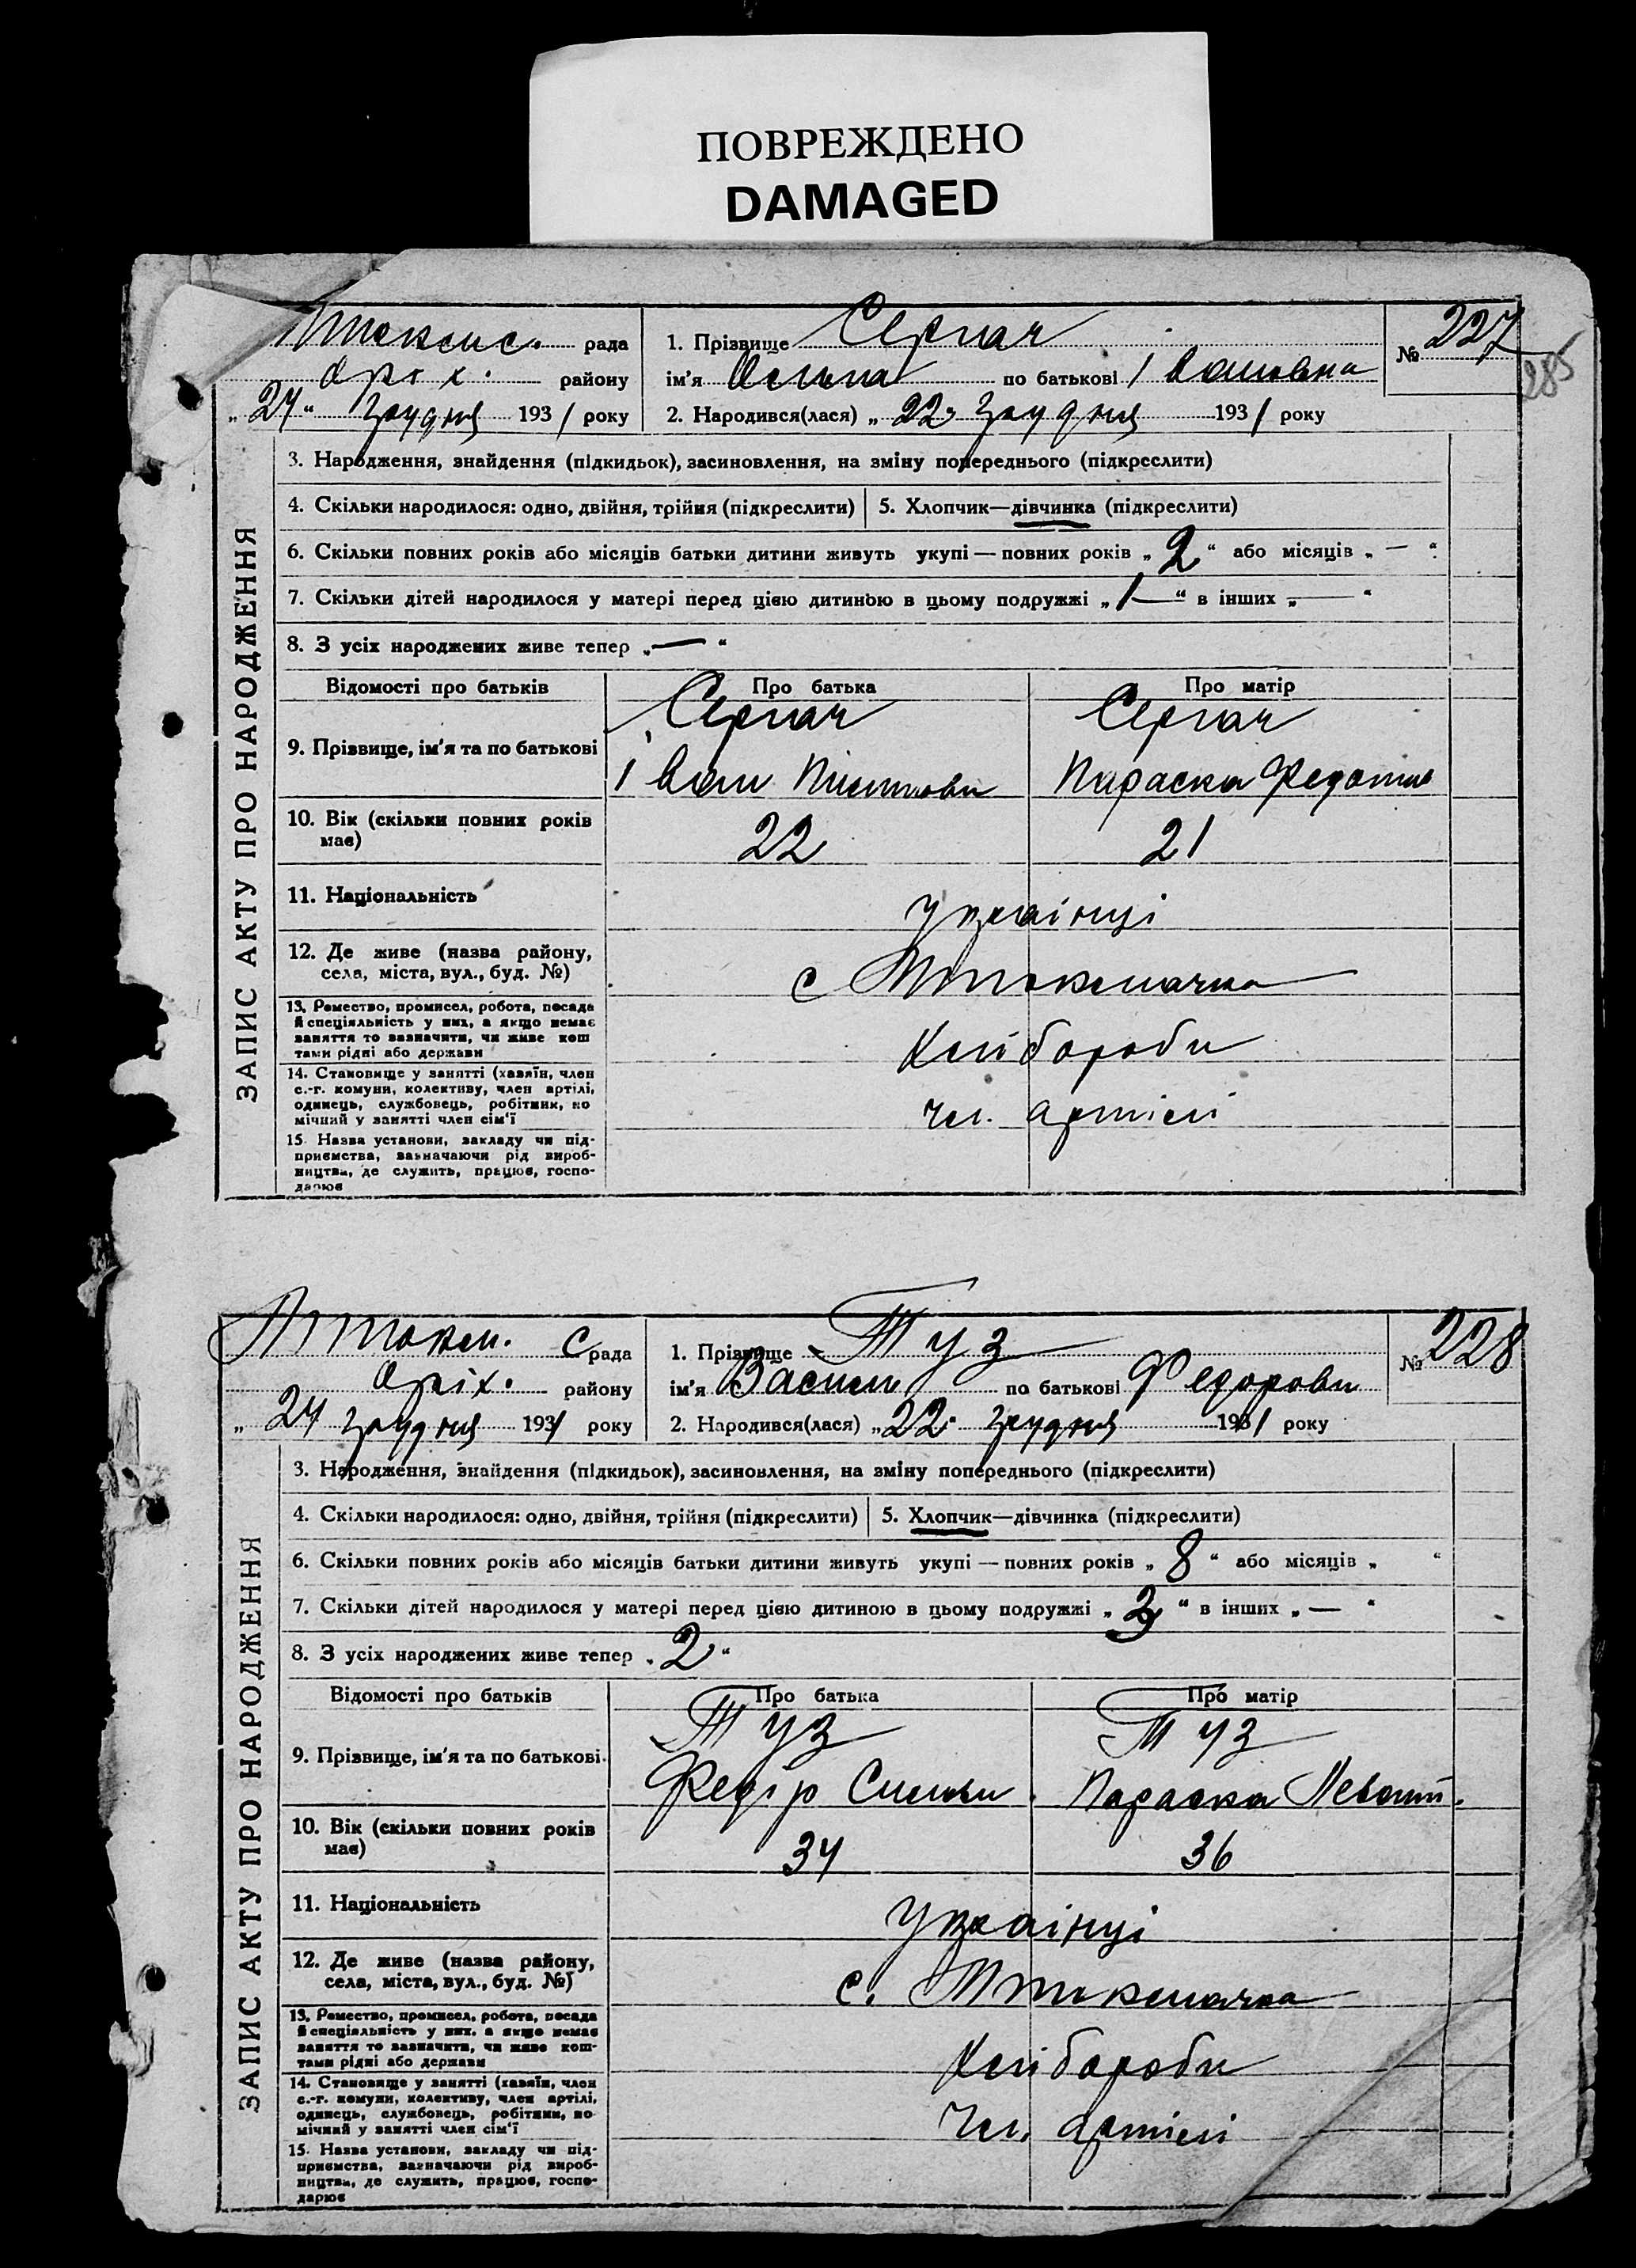 ПОВРЕЖДЕНО
DAMAGED
рада 1. Прізвище Сергач № 227
Оріх. району ім'я по батькові Івановна 285
„ 24 “ грудня 1931 року 2. Народився(лася) „ 22 “ грудня 1931 року
ЗАПИС АКТУ ПРО НАРОДЖЕННЯ
3. Народження, знайдення (підкидьок), засиновлення, на зміну попереднього (підкреслити)
4. Скільки народилося: одно, двійня, трійня (підкреслити) 5. Хлопчик—дівчинка (підкреслити)
6. Скільки повних років або місяців батьки дитини живуть укупі — повних років „ 2 “ або місяців „ — “
7. Скільки дітей народилося у матері перед цією дитиною в цьому подружжі „ 1 — “ в інших „ — “
8. З усіх народжених живе тепер „ — “
Відомості про батьків Про батька Про матір
Сергач Сергач
9. Прізвище, ім'я та по батькові
Іван Параска
10. Вік (скільки повних років
має) 22 21
11. Національність українці
12. Де живе (назва району,
села, міста, вул., буд. №) с
13. Ремество, промисел, робота, посада
й спеціяльність у них, а якщо немає
заняття то зазначити, чи живе кош
тами рідні або держави
Хлібороби
14. Становище у занятті (хазяїн, член
с.-г. комуни, колективу, член артілі,
одинець, службовець, робітник, по
мічний у занятті член сім'ї
чл. артілі
15. Назва установи, закладу чи під-
приємства, зазначаючи рід вироб-
ництва, де служить, працює, госпо-
дарює
с рада 1. Прізвище Туз № 228
Оріх. району ім'я Василь по батькові Федорови
„ 24 грудня 1931 року 2. Народився(лася) „ 22 “ грудня 1931 року
ЗАПИС АКТУ ПРО НАРОДЖЕННЯ
3. Народження, знайдення (підкидьок), засиновлення, на зміну попереднього (підкреслити)
4. Скільки народилося: одно, двійня, трійня (підкреслити) 5. Хлопчик—дівчинка (підкреслити)
6. Скільки повних років або місяців батьки дитини живуть укупі — повних років „ 8 “ або місяців „ “
7. Скільки дітей народилося у матері перед цією дитиною в цьому подружжі „ 3 “ в інших „ — “
8. З усіх народжених живе тепер „ 2 “
Відомості про батьків Про батька Про матір
Туз Туз
9. Прізвище, ім'я та по батькові
Федір Параска
10. Вік (скільки повних років
має) 34 36
11. Національність українці
12. Де живе (назва району,
села, міста, вул., буд. №) с.
13. Ремество, промисел, робота, посада
й спеціяльність у них, а якщо немає
заняття то зазначити, чи живе кош-
тами рідні або держави
Хлібороби
14. Становище у занятті (хазяїн, член
с.-г. комуни, колективу, член артілі,
одинець, службовець, робітник, по
мічний у занятті член сім'ї
чл. артілі
15. Назва установи, закладу чи під-
приємства, зазначаючи рід вироб-
ництва, де служить, працює, госпо-
дарює